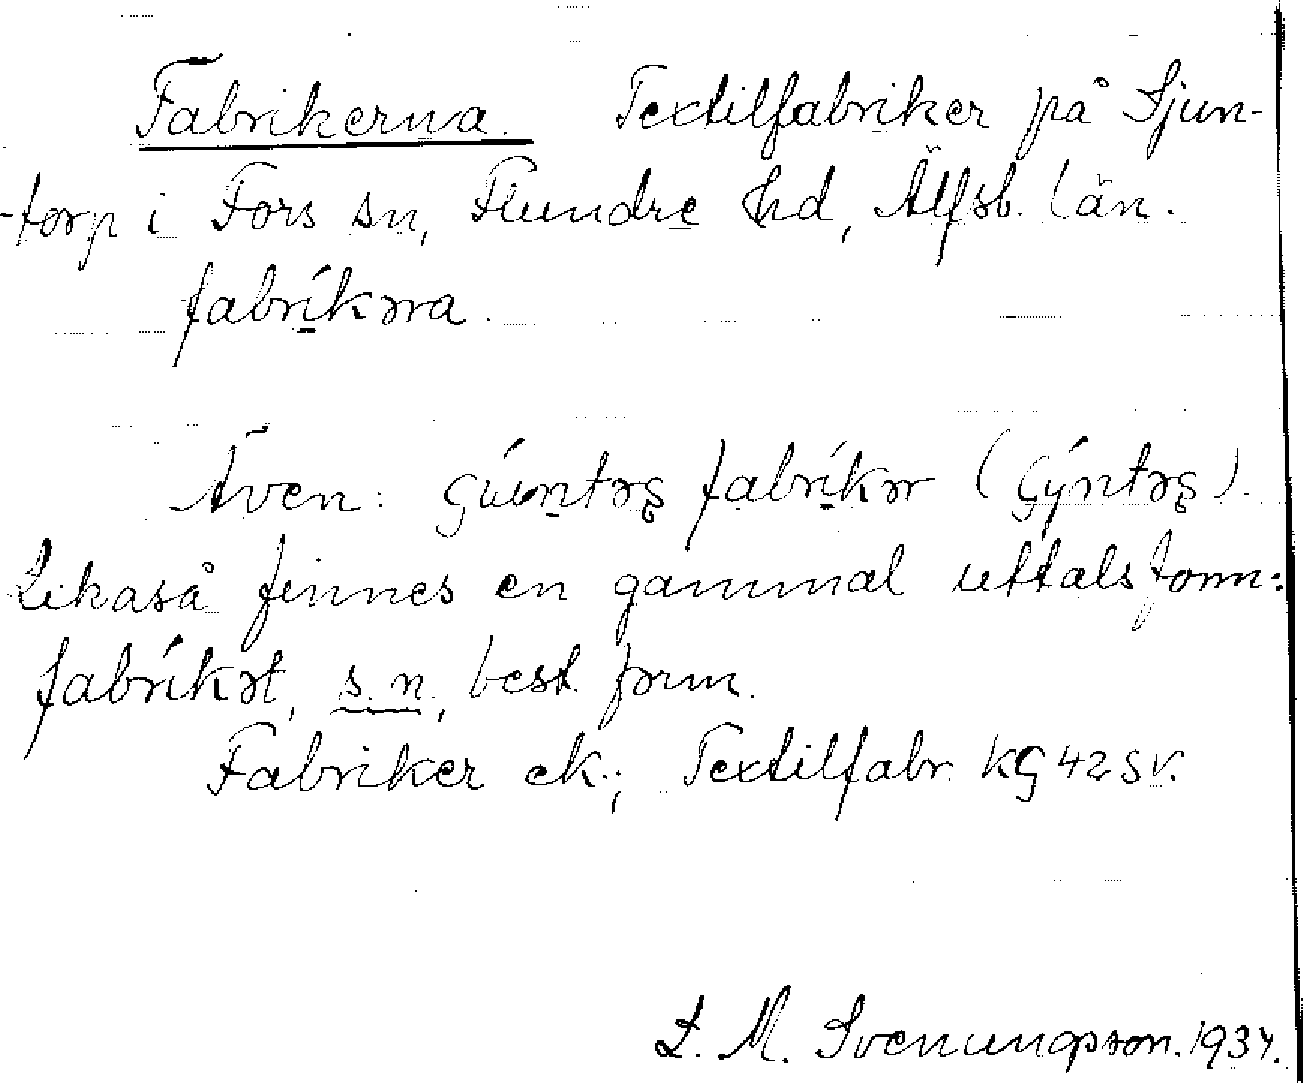 Fabrikerna. Textilfabriker på Sjun-
-torp i Fors sn, Flundre hd, Älfsb. län.
fabríkəra.
Även: fabríkər
Likaså finnes en gammal uttalsform:
fabríkət, s. n., best. form.
Fabriker ek.; Textilfabr. KG 42 SV.
L. M. Svenungsson. 1934.